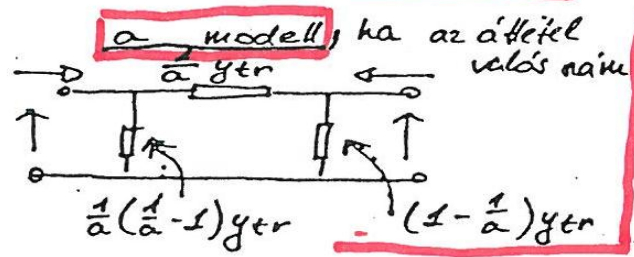 a modell, ha az áttétel
valós szám
1/a ytr
1/a (1/a - 1) ytr
(1 - 1/a) ytr